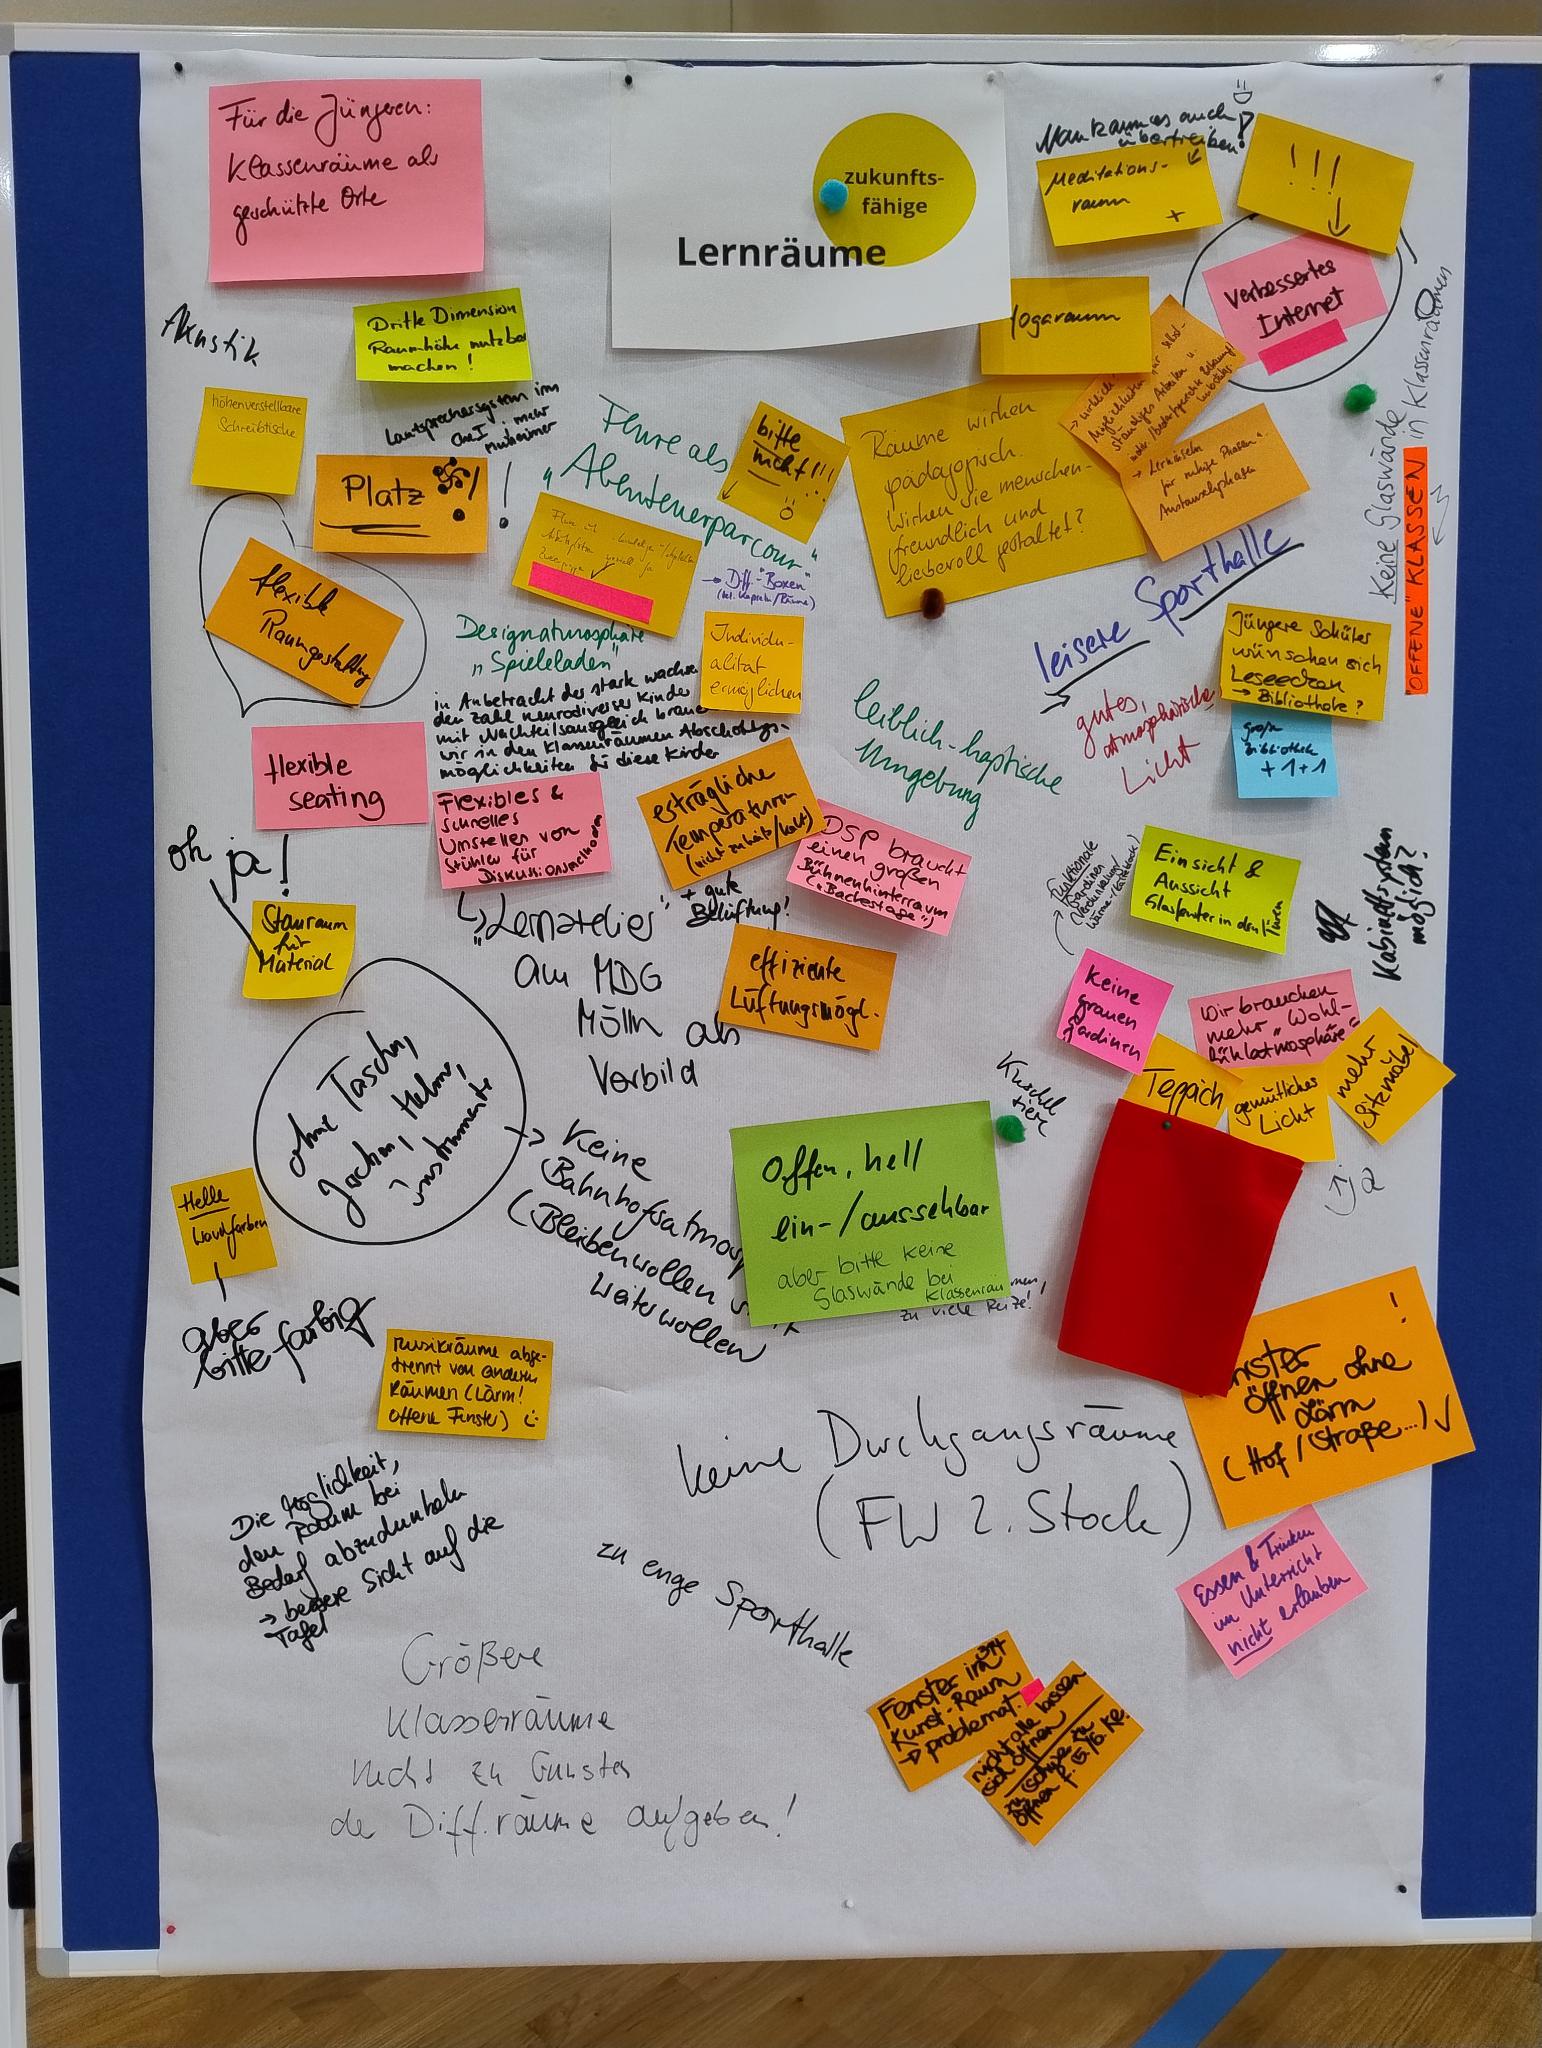 Für die Jüngeren:
Klassenräume als
geschützte Orte
zukunfts-
fähige
Lernräume
Man kann es auch
übertreiben!
Meditations-
raum
+
!!!
Verbessertes
Internet
Yogaraum
Akustik
Dritte Dimension
Raumhöhe nutzbar
machen!
höhenverstellbare
Schreibtische
Lautsprechersystem im
Platz !
!
flexible
Raumgestaltung
Flure als
"Abenteuerparcour"
bitte
nicht!!!
→ Diff.-"Boxen"
Räume wirken
pädagogisch.
Wirken sie menschen-
freundlich und
liebevoll gestaltet?
→ Lerninseln
für ruhige Phasen u.
Austauschphasen
Keine Glaswände in Klassenräumen
"OFFENE" KLASSEN
leisere Sporthalle
Designatmosphäre
"Spieleladen"
Individu-
alität
ermöglichen
in Anbetracht der stark wachsen
den Zahl neurodiverser Kinder
mit Nachteilsausgleich brauc
wir in den Klassenräumen Abschottungs-
möglichkeiten für diese Kinder
Jüngere Schüler
wünschen sich
Leseecken
→ Bibliothek?
große
Bibliothek
+1+1
leiblich-haptische
Umgebung
gutes,
atmosphärisches
Licht
flexible
seating
Flexibles &
schnelles
Umstellen von
Stühlen für
Diskussionsmethoden
erträgliche
Temperaturen
(nicht zu heiß/kalt)
+ gute
Belüftung!
DSP braucht
einen großen
Bühnenhinterraum
("Backestage")
oh ja!
Stauraum
für
Material
"Lernatelier"
am MDG
Mölln als
Vorbild
effiziente
Lüftungsmögl.
Funktionale
Gardinen
Verdunkelung/
Einsicht &
Aussicht
Glasfenster in den Türen
Kabinettsystem
möglich?
Keine
grauen
Gardinen
Wir brauchen
mehr "Wohl-
fühlatmosphäre"
Teppich
gemütliches
Licht
mehr
Sitzmöbel
↑ja
Kuschel
tier
ohne Taschen,
Jacken, Helme,
Instrumente
→ Keine
Bahnhofsatmosp
(Bleibenwollen
weiterwollen
Offen, hell
ein-/aussehbar
aber bitte keine
Glaswände bei
Klassenräumen,
zu viele Reize!
Helle
Wandfarben
aber
bitte farbig
Musikräume abge-
trennt von anderen
Räumen (Lärm!
offene Fenster) :-
nster
öffnen ohne
Lärm
(Hof/Straße...)
!
keine Durchgangsräume
(FW 2. Stock)
Die Möglichkeit,
den Raum bei
Bedarf abzudunkeln
→ bessere Sicht auf die
Tafel
zu enge Sporthalle
Essen & Trinken
im Unterricht
nicht erlauben
Größere
Klassenräume
nicht zu Gunsten
der Diff.räume aufgeben!
Fenster im 314
Kunst-Raum
→ problemat.
nicht alle lassen
sich öffnen
zu schwer zu
öffnen f. (5./6. Kl.